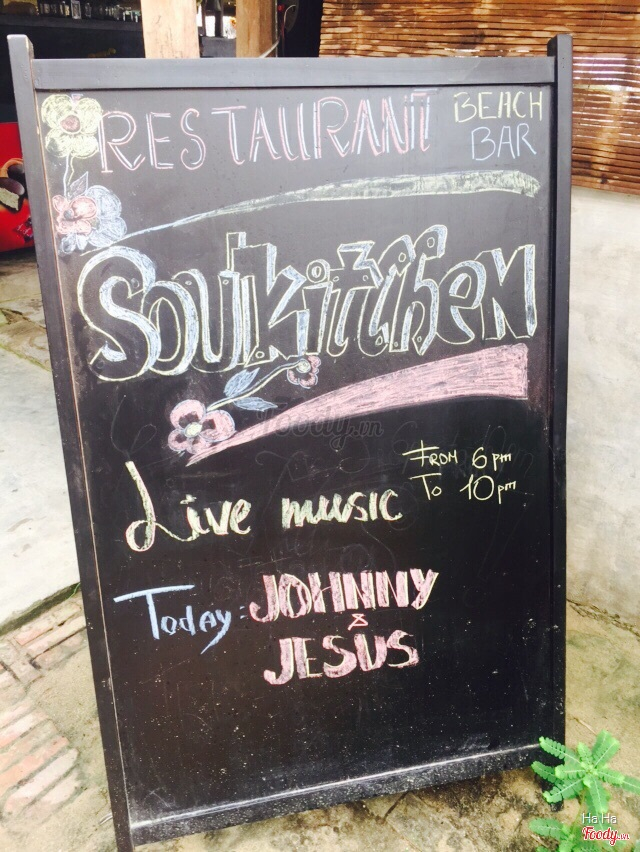 RESTAURANT
BEACH
BAR
Soulkitchen
Foody.vn
Live music
FROM 6pm
To 10pm
Today:
JOHNNY
&
JESUS
Ha Ha
Foody.vn